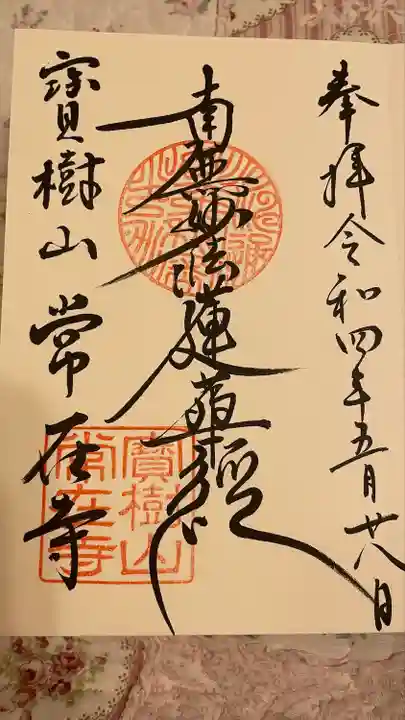 奉拝 令和四年五月廿八日
南無妙法蓮華経
寳樹山 常在寺
寳樹山
常在寺